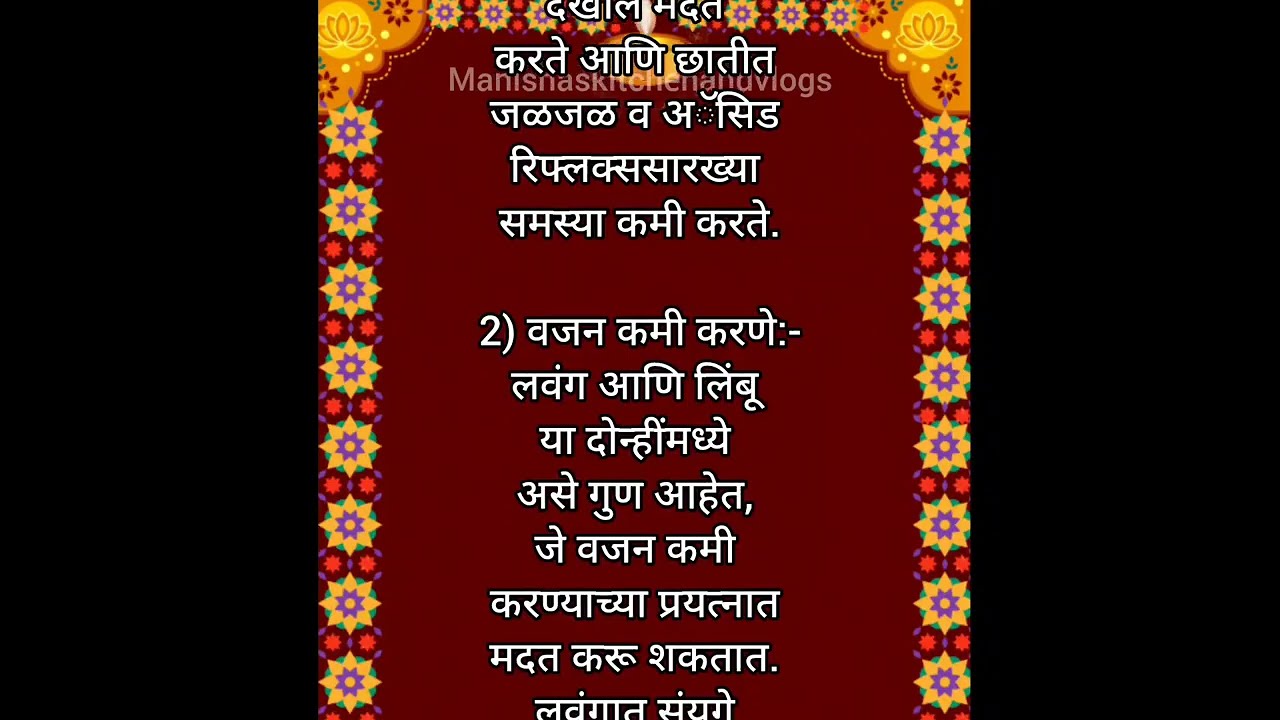 देखील मदत
करते आणि छातीत
Manishaskitchenandvlogs
जळजळ व अॅसिड
रिफ्लक्ससारख्या
समस्या कमी करते.
2) वजन कमी करणे:-
लवंग आणि लिंबू
या दोन्हींमध्ये
असे गुण आहेत,
जे वजन कमी
करण्याच्या प्रयत्नात
मदत करू शकतात.
लवंगात संयुगे